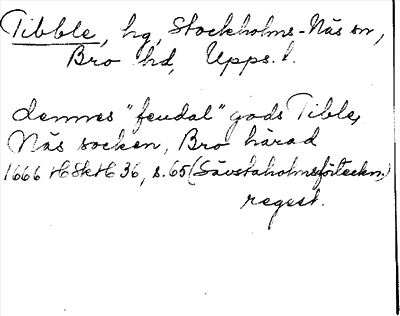 Tibble, hg, Stockholms-Näs sn,
Bro hd, Upps. l.
dennes "feudal" gods Tible,
Näs socken, Bro härad
1666 HSkH 36, s. 65 (Sävstaholmsförteckn.)
regest.